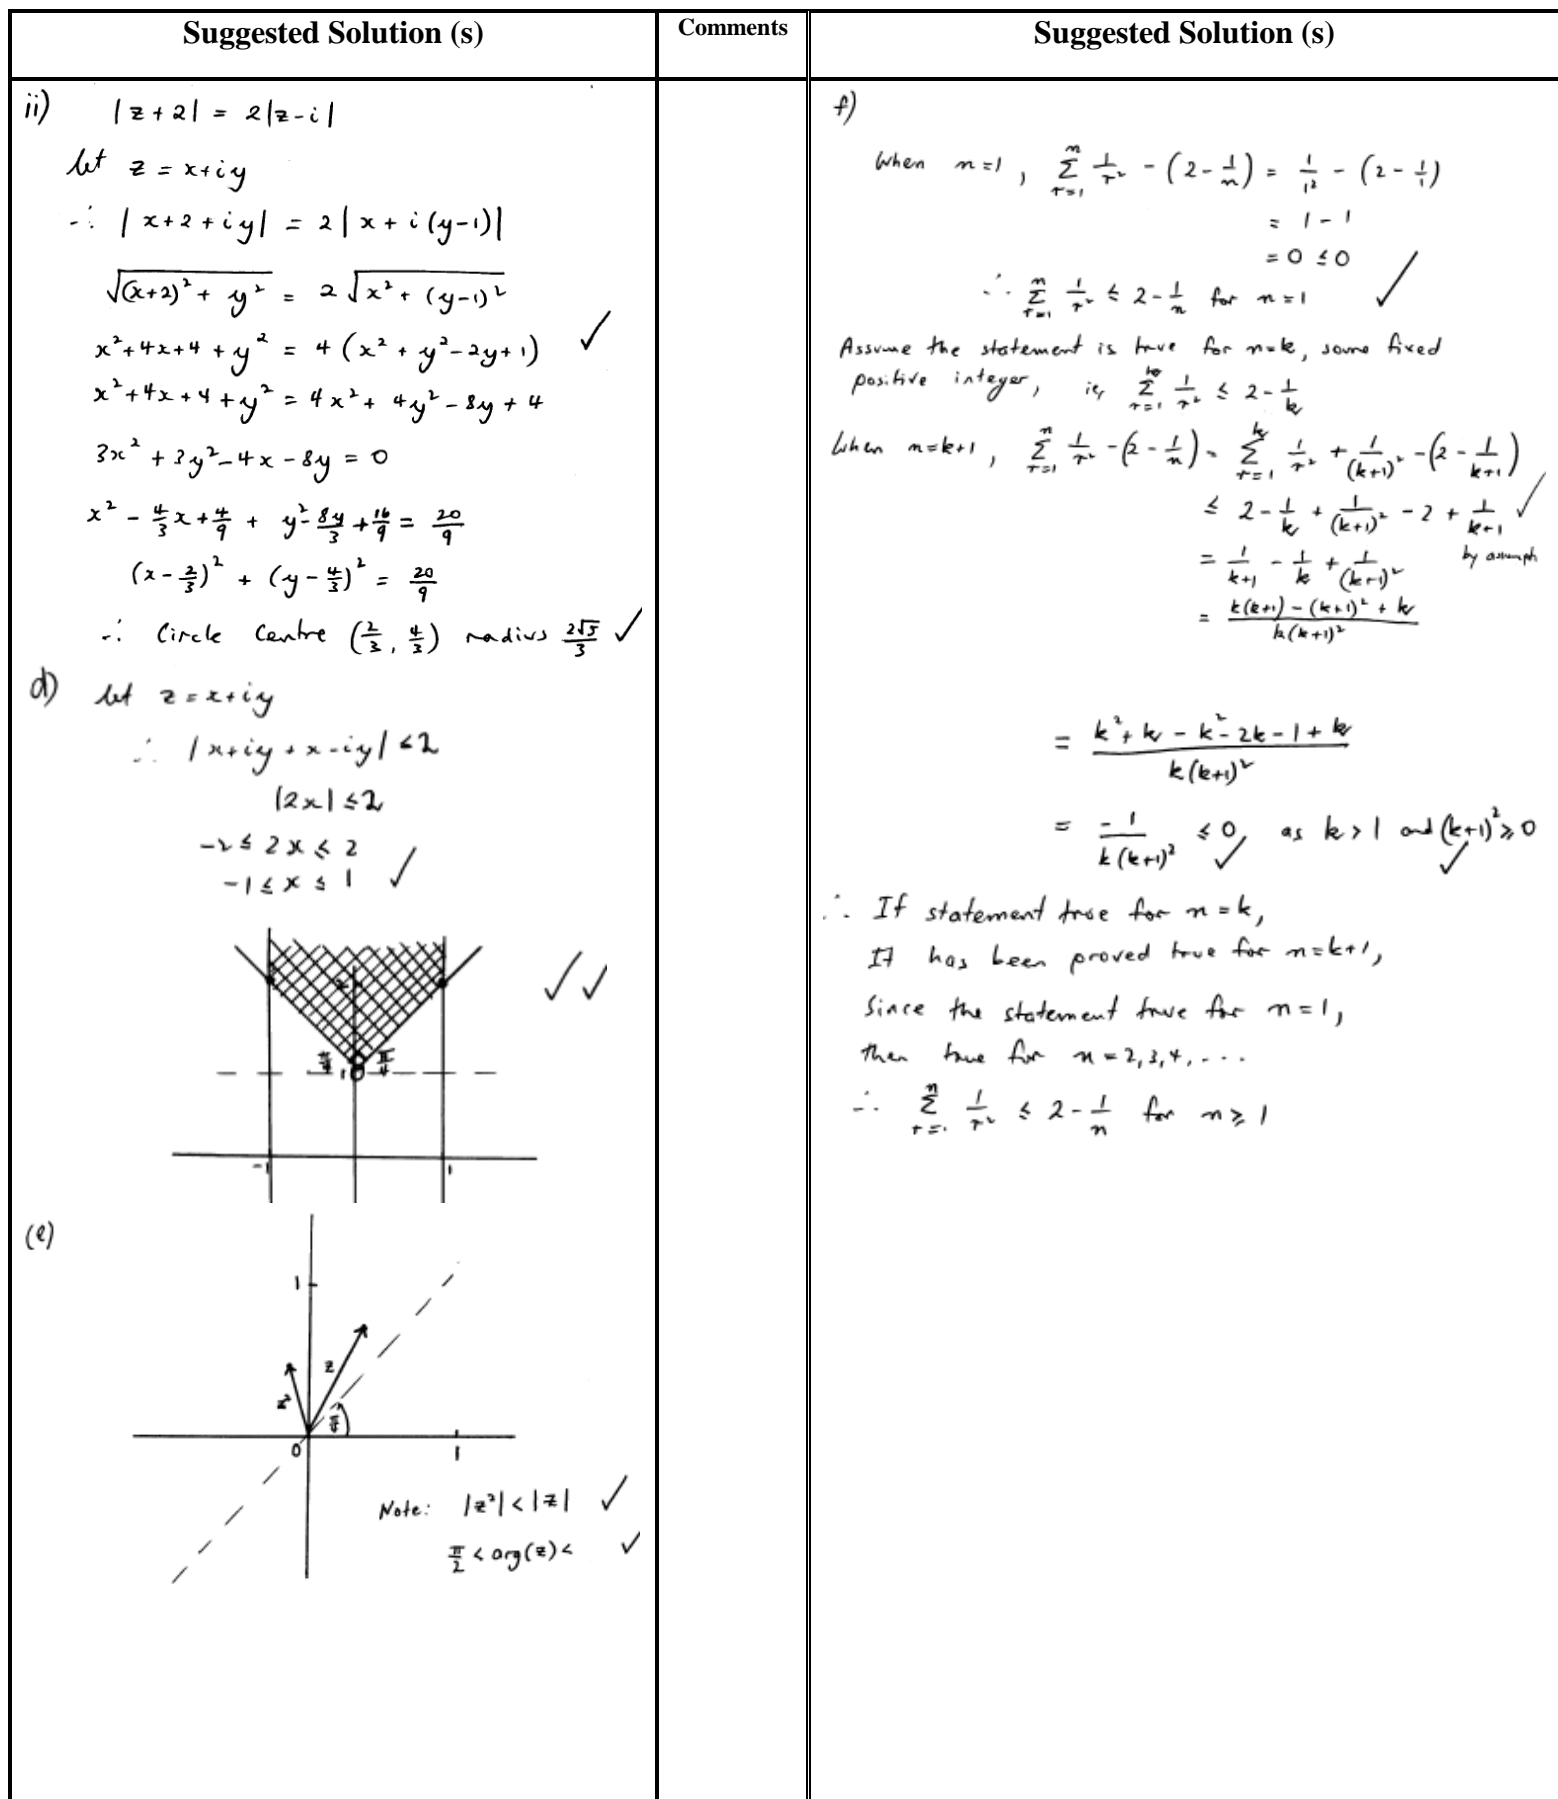 Suggested Solution (s)
Comments
Suggested Solution (s)
ii) |z + 2| = 2|z - i|
let z = x + iy
∴ |x + 2 + iy| = 2|x + i(y-1)|
√((x+2)² + y²) = 2√(x² + (y-1)²)
x² + 4x + 4 + y² = 4(x² + y² - 2y + 1) ✓
x² + 4x + 4 + y² = 4x² + 4y² - 8y + 4
3x² + 3y² - 4x - 8y = 0
x² - 4/3 x + 4/9 + y² - 8y/3 + 16/9 = 20/9
(x - 2/3)² + (y - 4/3)² = 20/9
∴ Circle Centre (2/3, 4/3) radius 2√5/3 ✓
d) let z = x + iy
∴ |x + iy + x - iy| ≤ 2
|2x| ≤ 2
-2 ≤ 2x ≤ 2
-1 ≤ x ≤ 1 ✓
2
✓✓
π/4 1 π/4
-1 1
(e)
1
z
z²
0 1
Note: |z²| < |z| ✓
π/2 < arg(z) < ✓
f)
When n=1, Σ_{r=1}^{n} 1/r² - (2 - 1/n) = 1/1² - (2 - 1/1)
= 1 - 1
= 0 ≤ 0
∴ Σ_{r=1}^{n} 1/r² ≤ 2 - 1/n for n = 1 ✓
Assume the statement is true for n=k, some fixed
positive integer, ie, Σ_{r=1}^{k} 1/r² ≤ 2 - 1/k
When n=k+1, Σ_{r=1}^{n} 1/r² - (2 - 1/n) = Σ_{r=1}^{k} 1/r² + 1/(k+1)² - (2 - 1/(k+1))
≤ 2 - 1/k + 1/(k+1)² - 2 + 1/(k+1) ✓
= 1/(k+1) - 1/k + 1/(k+1)² by assumpt
= (k(k+1) - (k+1)² + k)/(k(k+1)²)
= (k² + k - k² - 2k - 1 + k)/(k(k+1)²)
= -1/(k(k+1)²) ≤ 0 ✓ as k > 1 and (k+1)² ≥ 0 ✓
∴ If statement true for n = k,
It has been proved true for n = k+1,
Since the statement true for n = 1,
then true for n = 2, 3, 4, ...
∴ Σ_{r=1}^{n} 1/r² ≤ 2 - 1/n for n ≥ 1